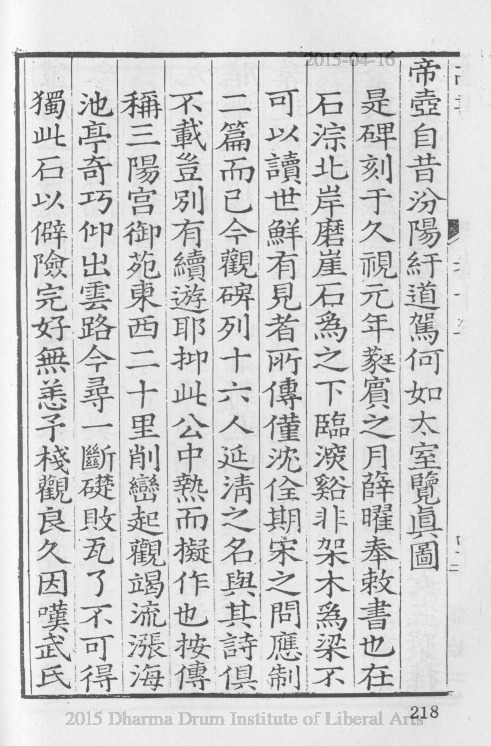 2015-04-16
帝壼自昔汾陽紆道駕何如太室覽眞圖
是碑刻于久視元年蕤賓之月薛曜奉敕書也在
石淙北岸磨崖石為之下臨㵎谿非架木為梁不
可以讀世鮮有見者所傳僅沈佺期宋之問應制
二篇而已今觀碑列十六人延清之名與其詩俱
不載豈別有續遊耶抑此公中熱而擬作也按傳
稱三陽宮御苑東西二十里削巒起觀竭流漲海
池亭奇巧仰出雲路今尋一斷礎敗瓦了不可得
獨此石以僻險完好無恙予棧觀良久因嘆武氏
218
2015 Dharma Drum Institute of Liberal Arts